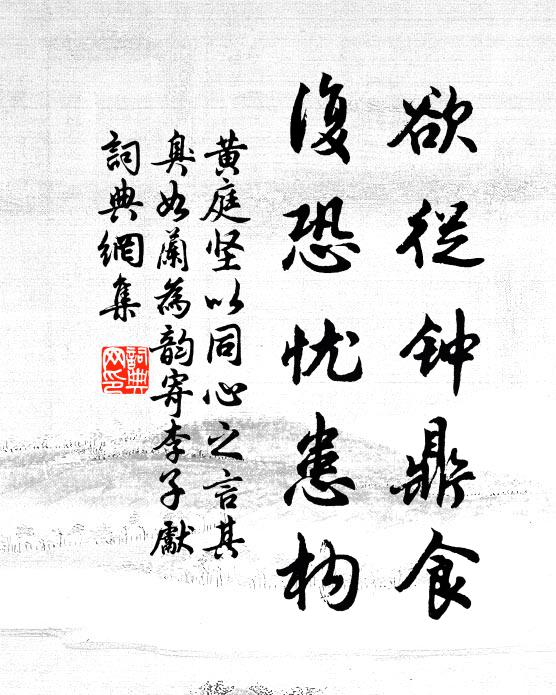 欲從钟鼎食
復恐忧患构
黄庭坚以同心之言其
臭如蘭為韵寄李子獻
詞典網集
詞典網印